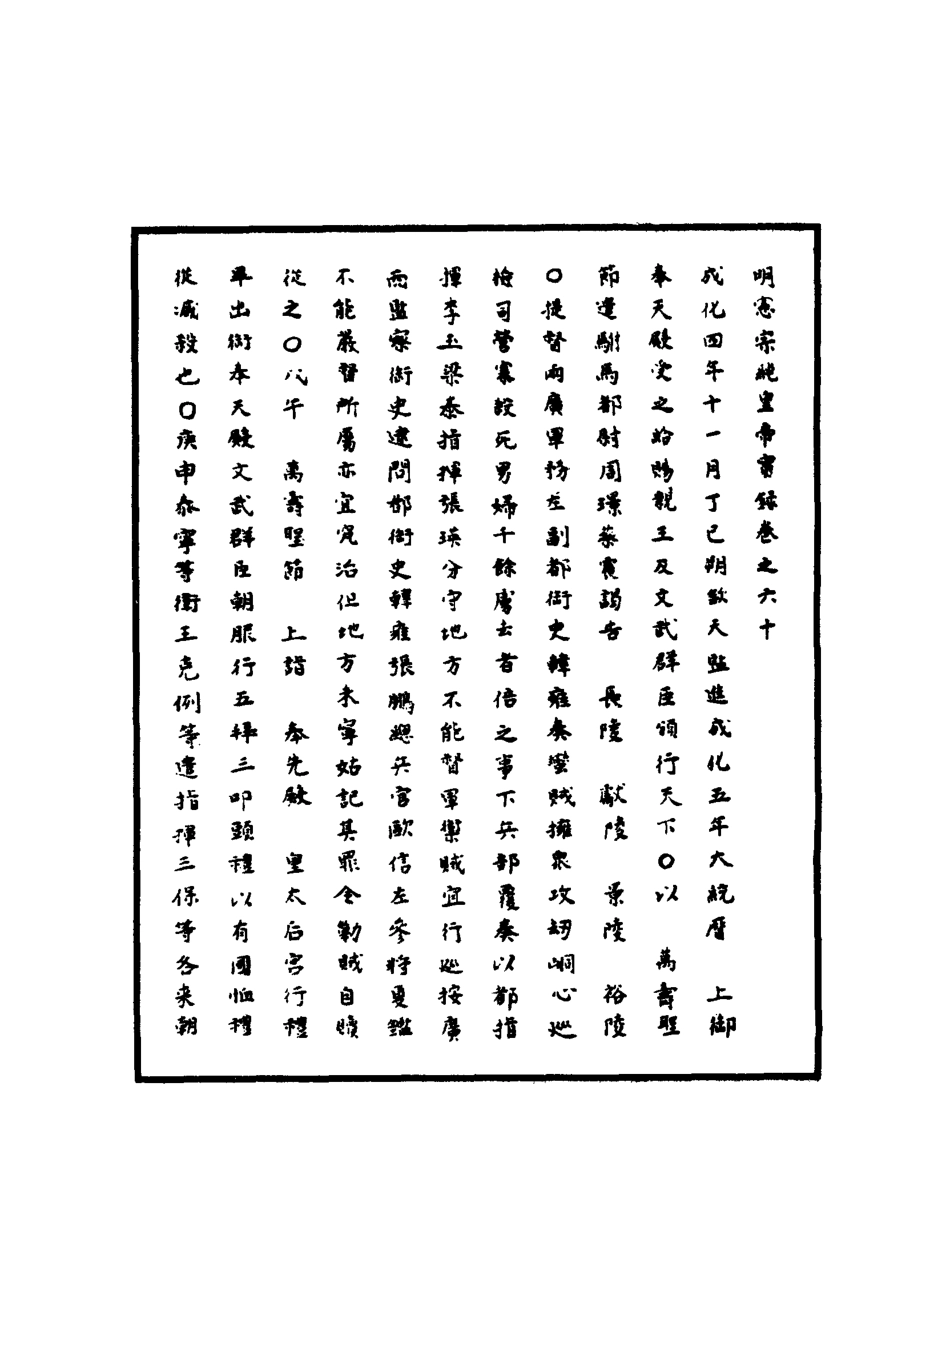 明憲宗純皇帝實錄卷之六十
成化四年十一月丁巳朔欽天監進成化五年大統曆　上御
奉天殿受之給賜親王及文武群臣頒行天下○以　萬壽聖
節遣駙馬都尉周璟蔡震謁告　長陵　獻陵　景陵　裕陵
○提督兩廣軍務左副都御史韓雍奏蠻賊擁眾攻劫峒心巡
檢司營寨殺死男婦千餘虜去者倍之事下兵部覆奏以都指
揮李玉梁泰指揮張瑛分守地方不能督軍禦賊宜行巡按廣
西監察御史逮問都御史韓雍張鵬總兵官歐信左參將夏鑑
不能嚴督所屬亦宜究治但地方未寧姑記其罪令勦賊自贖
從之○戊午　萬壽聖節　上詣　奉先殿　皇太后宮行禮
畢出御奉天殿文武群臣朝服行五拜三叩頭禮以有國恤禮
從減殺也○庚申泰寧等衛王克例等遣指揮三保等各來朝